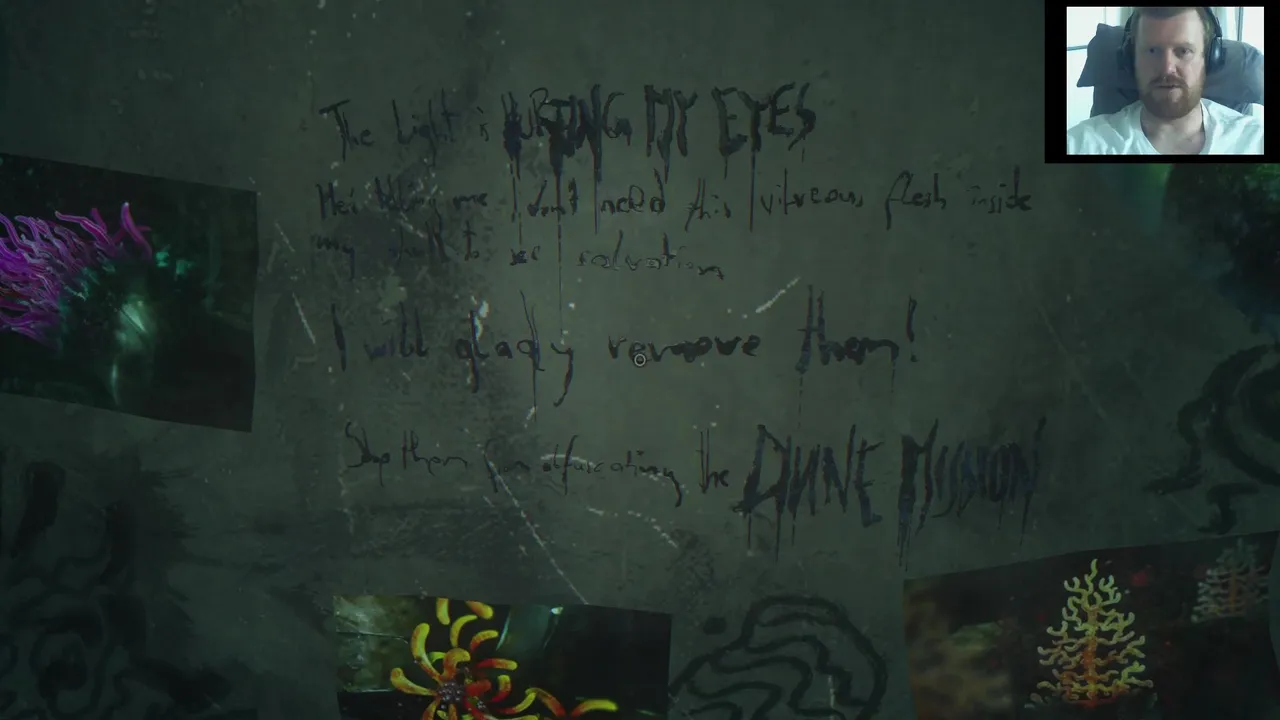 The Light is HURTING MY EYES
me I don't need this vitreous flesh inside
my skull to see salvation
I will glady remove them!
Stop them from obfuscating the DIVINE MISSION